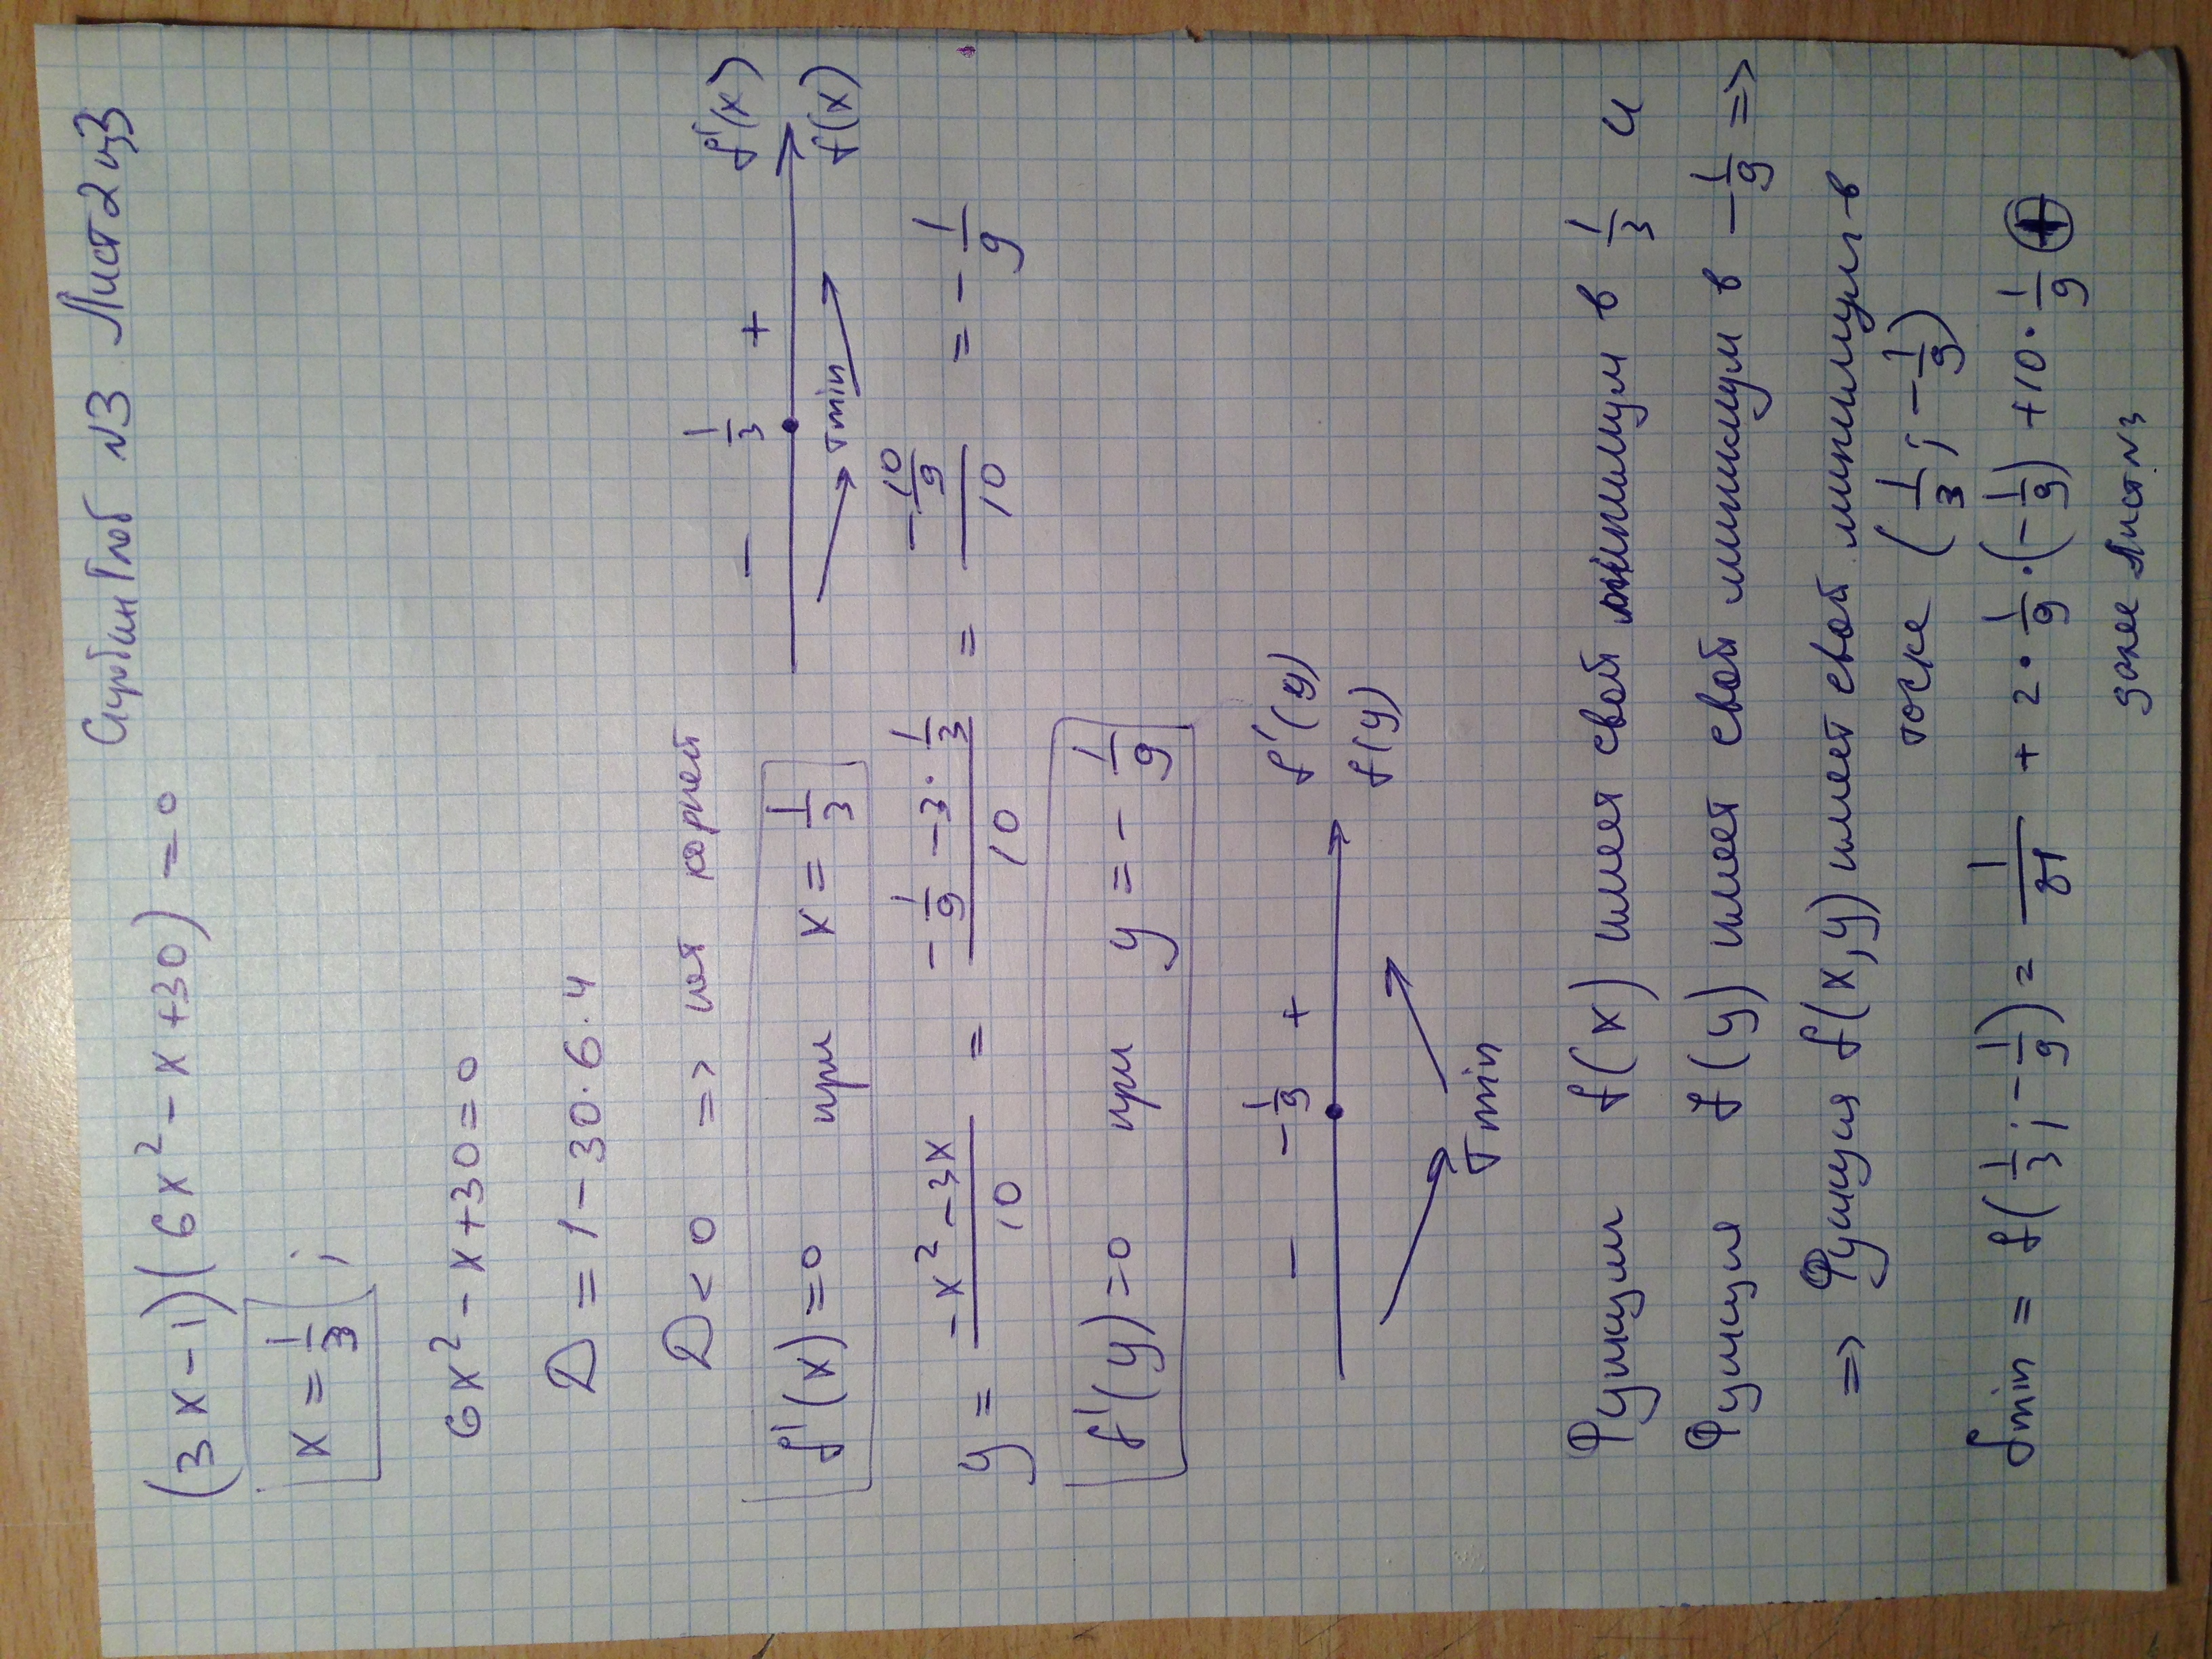 Глеб №3 Лист 2 из 3
(3x-1)(6x²-x+30)=0
x = 1/3 ;
6x²-x+30=0
D = 1-30·6·4
D<0 => нет корней
- 1/3 + f'(x)
Tmin f(x)
f'(x)=0 при x = 1/3
y = (-x²-3x)/10 = (-1/9 -3·1/3)/10 = (-10/9)/10 = -1/9
f'(y)=0 при y = -1/9
- -1/9 + f'(y)
f(y)
Tmin
Функции f(x) имеет свой минимум в 1/3 и
Функция f(y) имеет свой минимум в -1/9 =>
=> Функция f(x,y) имеет свой минимум в
точке (1/3; -1/9)
fmin = f(1/3; -1/9) = 1/81 + 2·1/9·(-1/9) +10·1/9 +
далее Лист №3